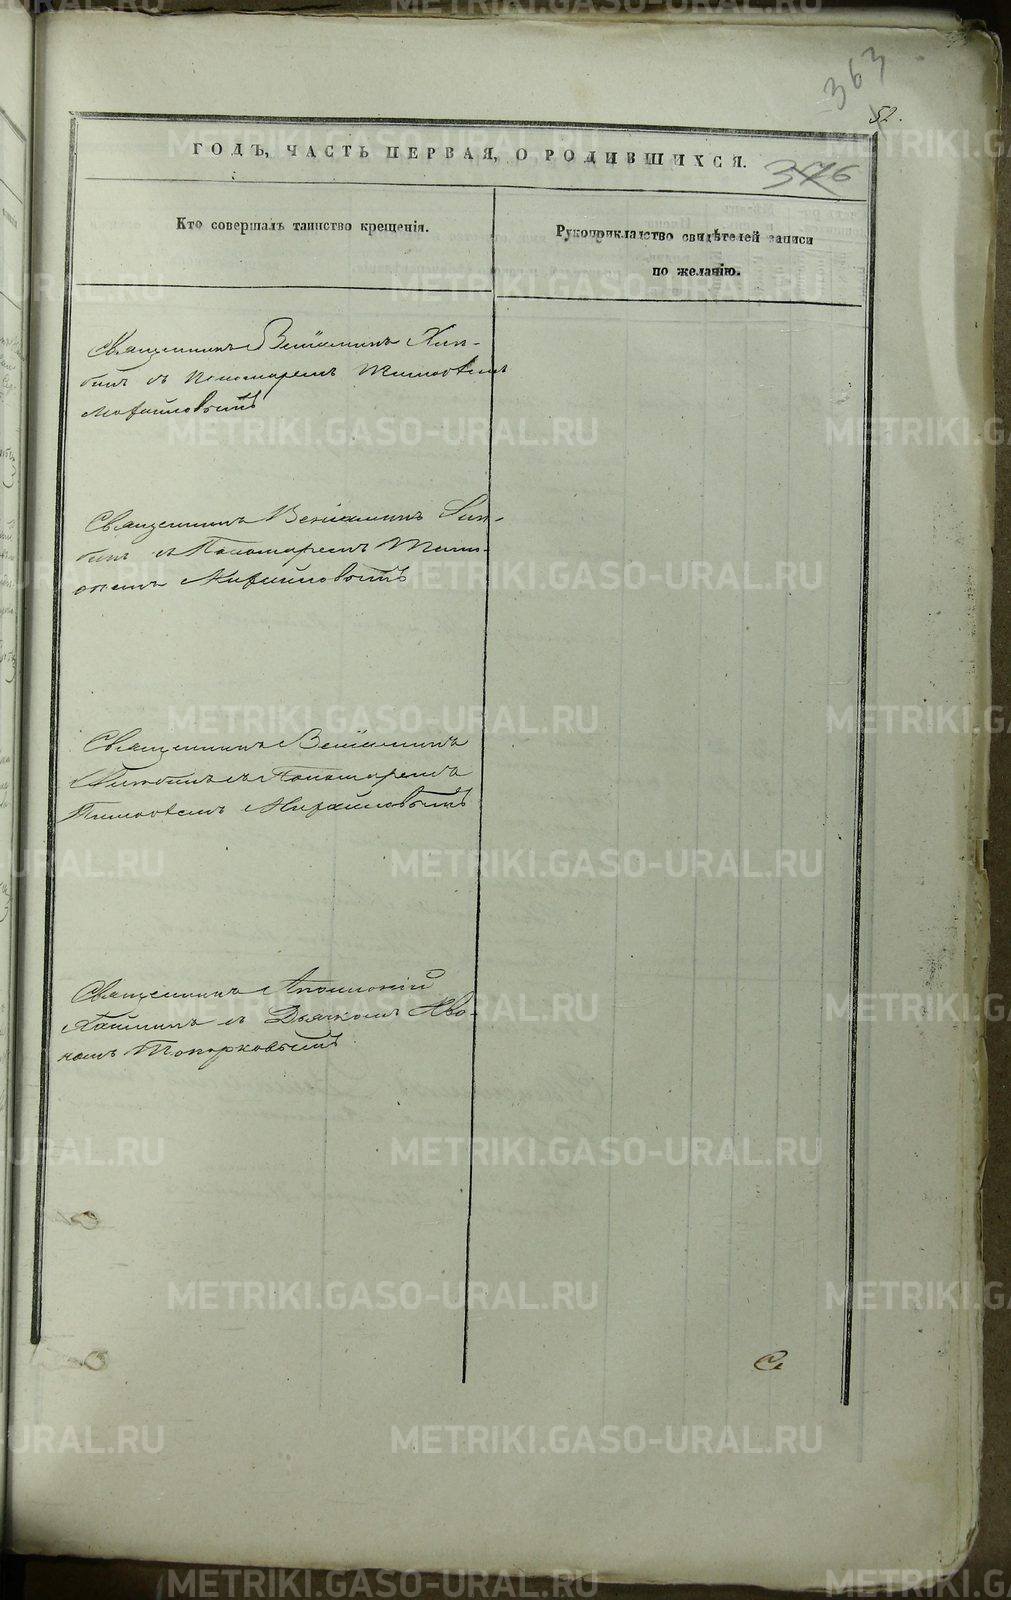 363
52.
ГОДЪ, ЧАСТЬ ПЕРВАЯ, О РОДИВШИХСЯ.
376
Кто совершалъ таинство крещенія.
Рукоприкладство свидѣтелей записи
по желанію.
Священникъ Веніаминъ
съ Пономаремъ Тимоѳеемъ
Михайловымъ
Священникъ Веніаминъ
съ Пономаремъ Тимо-
ѳеемъ Михайловымъ
Священникъ Веніаминъ
съ Пономаремъ
Тимоѳеемъ Михайловымъ
Священникъ Аполлоній
съ Дьячкомъ Ива-
номъ Топорковымъ
METRIKI.GASO-URAL.RU